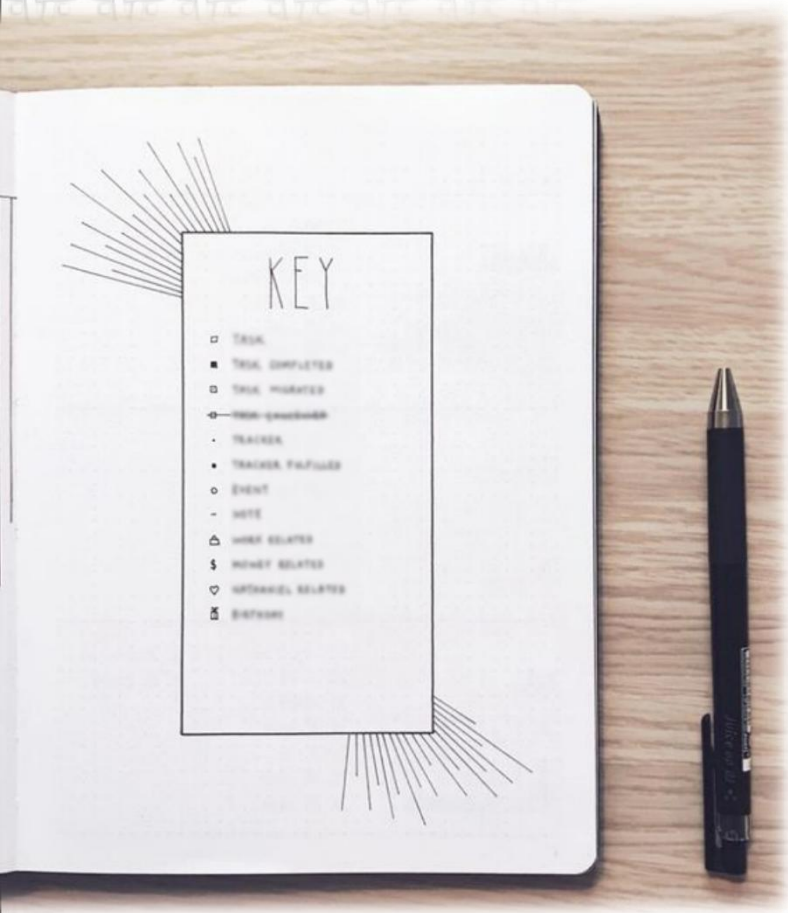 KEY
TASK
TASK COMPLETED
TASK MIGRATED
TASK CANCELLED
TRACKER
TRACKER FULFILLED
EVENT
NOTE
WORK RELATED
$ MONEY RELATED
NATHANIEL RELATED
BIRTHDAY